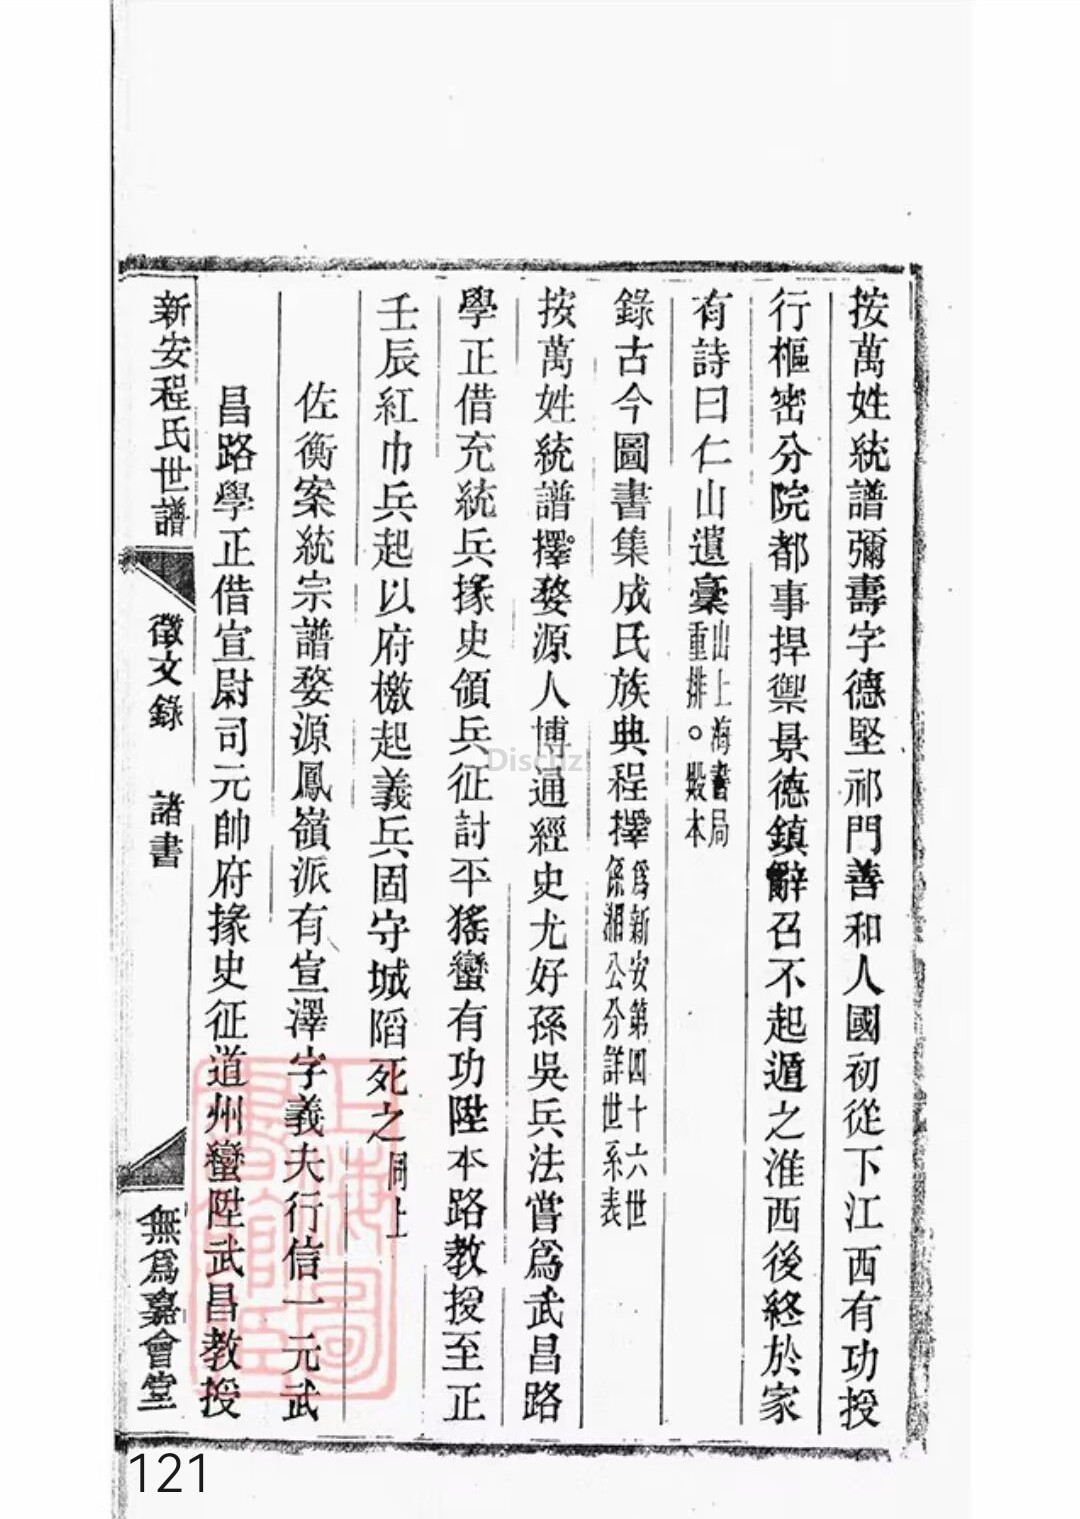 按萬姓統譜彌壽字德堅祁門善和人國初從下江西有功授
行樞密分院都事捍禦景德鎮辭召不起遁之淮西後終於家
有詩曰仁山遺稾
山上海書局
重排。殿本
錄古今圖書集成氏族典程擇
爲新安第四十六世
係湘公分詳世系表
按萬姓統譜擇婺源人博通經史尤好孫吳兵法嘗爲武昌路
學正借充統兵掾史領兵征討平猺蠻有功陞本路教授至正
壬辰紅巾兵起以府檄起義兵固守城陷死之
同上
佐衡案統宗譜婺源鳳嶺派有宣澤字義夫行信一元武
昌路學正借宣尉司元帥府掾史征道州蠻陞武昌教授
新安程氏世譜
徵文錄 諸書
無爲嘉會堂
Discuz!
121